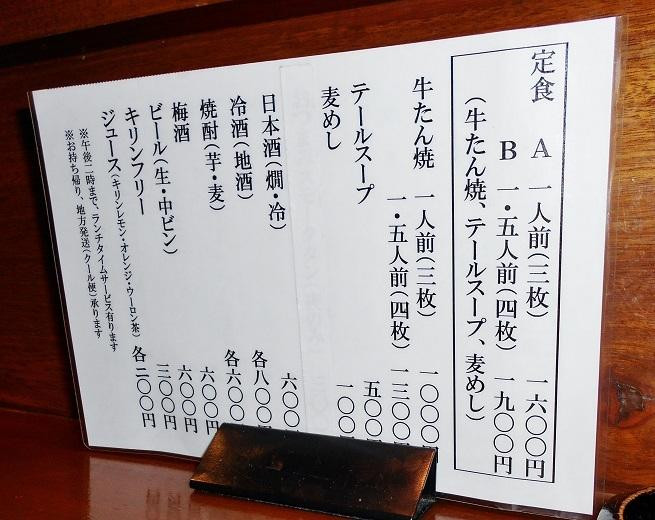 定食 A 一人前(三枚) 一六〇〇円
B 一・五人前(四枚) 一九〇〇円
(牛たん焼、テールスープ、麦めし)
牛たん焼 一人前(三枚) 一〇〇〇
一・五人前(四枚) 一三〇〇
テールスープ 五〇〇
麦めし 一〇〇
日本酒(燗・冷) 六〇〇
冷酒(地酒) 各八〇〇
焼酎(芋・麦) 各六〇〇
梅酒 六〇〇円
ビール(生・中ビン) 六〇〇円
キリンフリー 三〇〇円
ジュース(キリンレモン・オレンジ・ウーロン茶) 各二〇〇円
※午後二時まで、ランチタイムサービス有ります
※お持ち帰り、地方発送(クール便)承ります